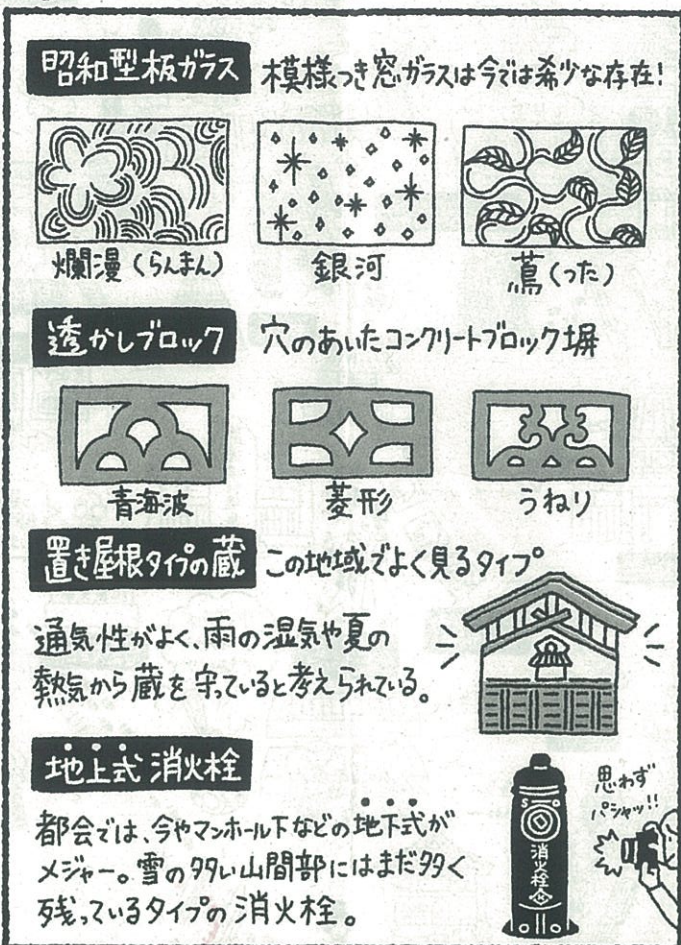 昭和型板ガラス 模様つき窓ガラスは今では希少な存在!
爛漫(らんまん) 銀河 蔦(つた)
透かしブロック 穴のあいたコンクリートブロック塀
青海波 菱形 うねり
置き屋根タイプの蔵 この地域でよく見るタイプ
通気性がよく、雨の湿気や夏の
熱気から蔵を守っていると考えられている。
地上式消火栓
思わず
パシャッ!!
都会では、今やマンホール下などの地下式が
メジャー。雪の多い山間部にはまだ多く
残っているタイプの消火栓。
消火栓